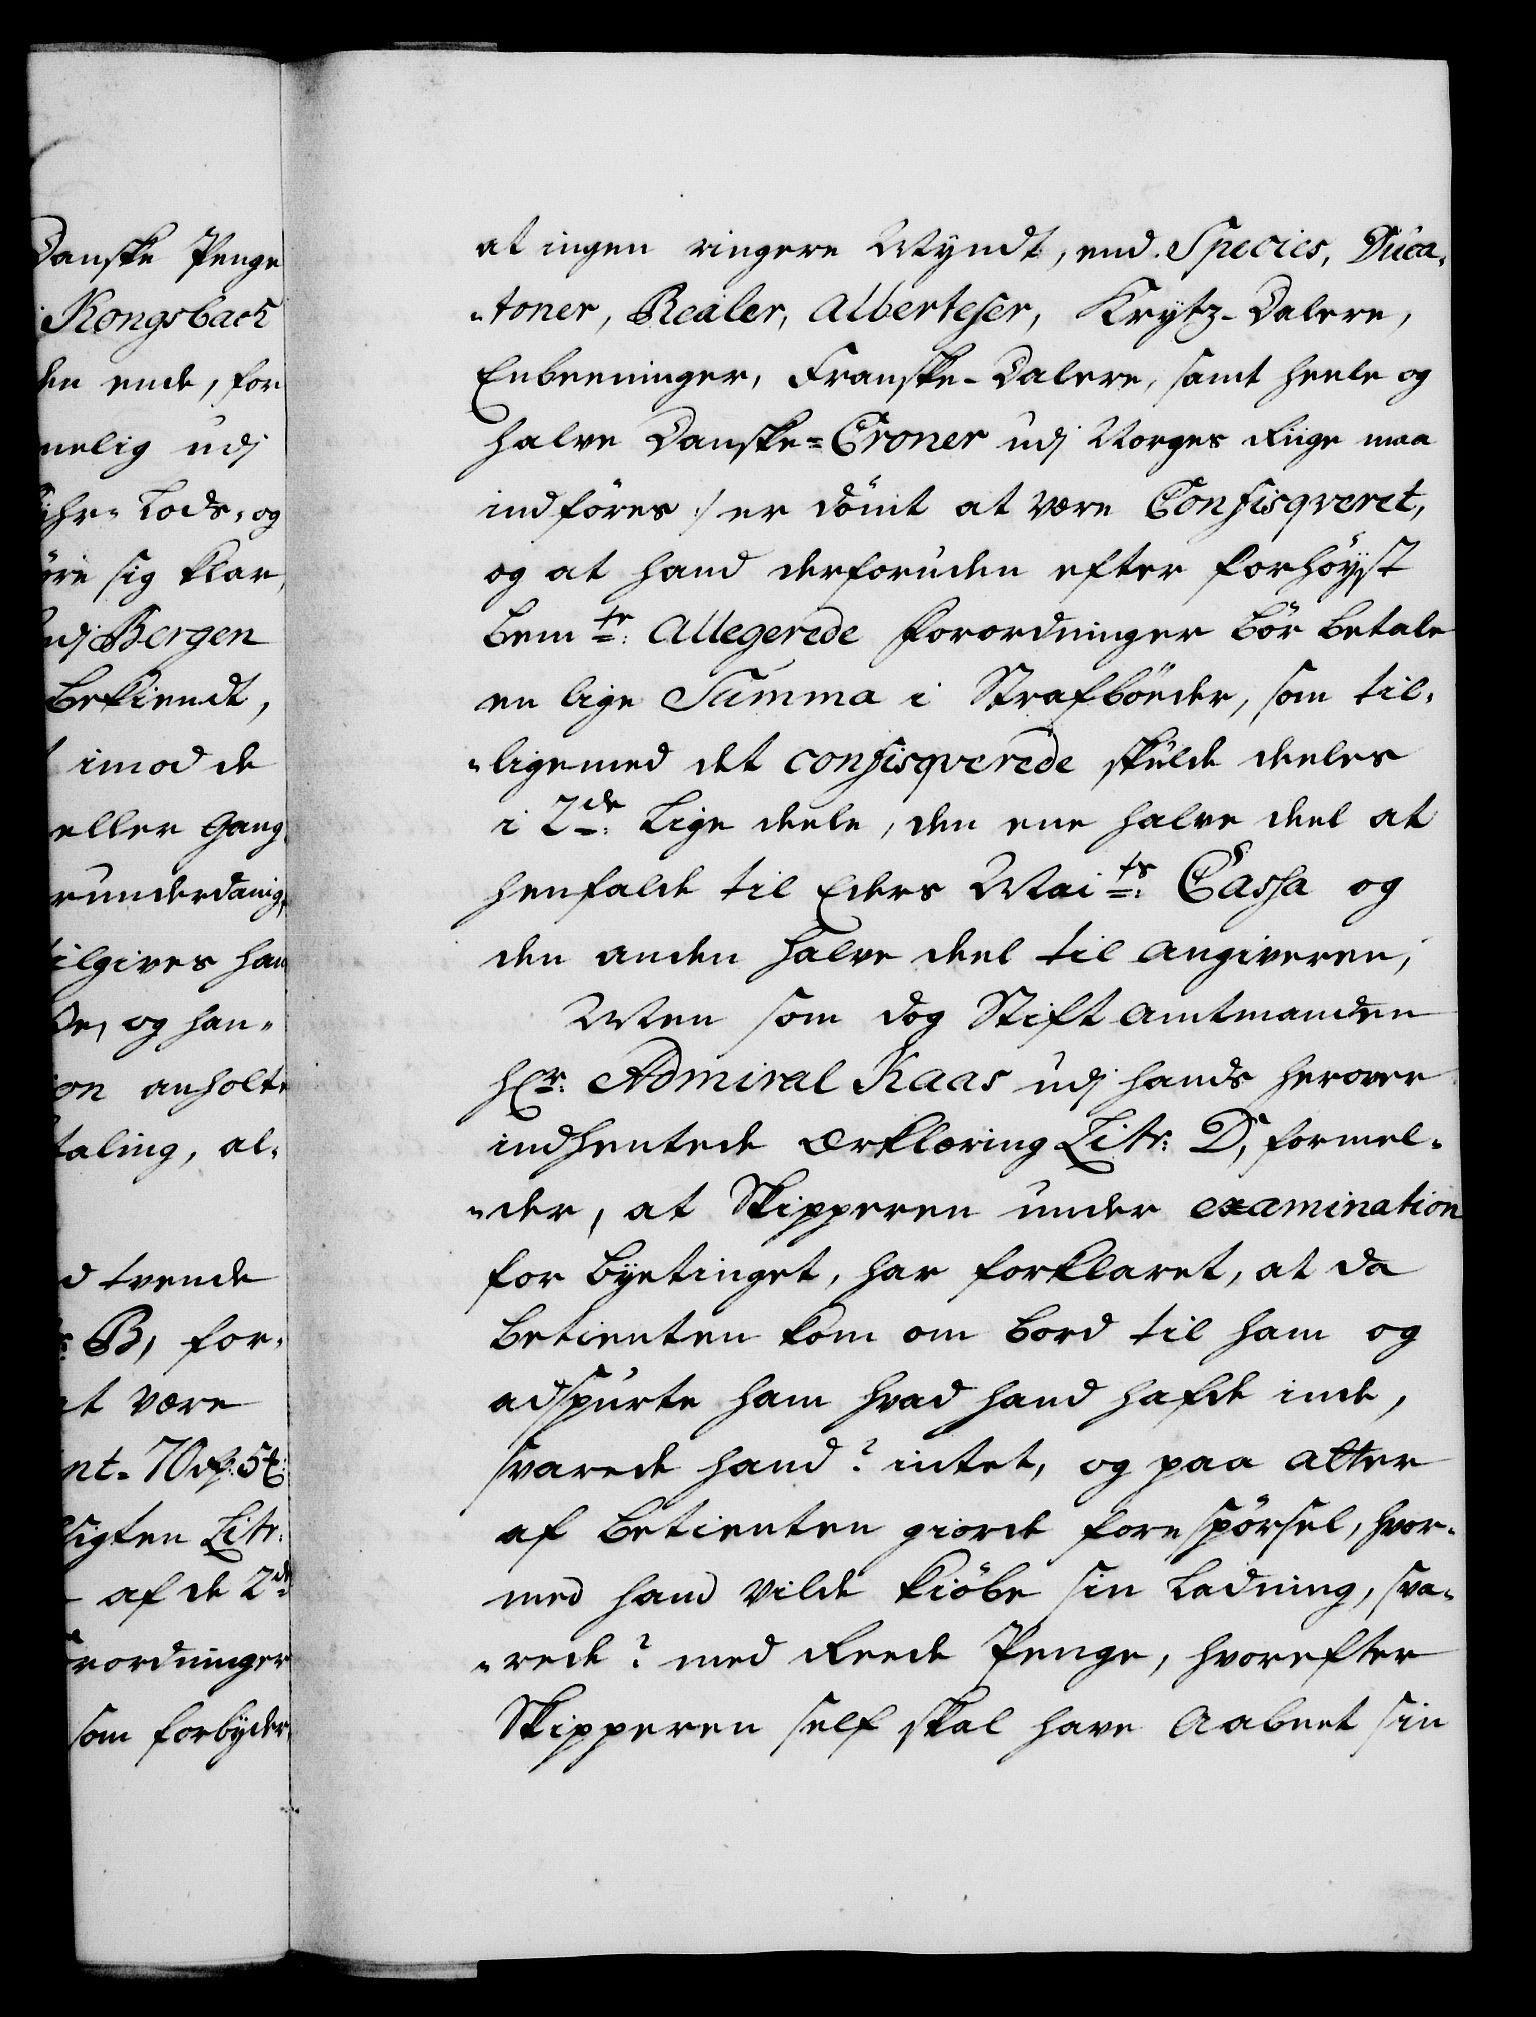 Danske Penge
Kongsbach
den ende, for
nelig udj
Lods, og
sig klar,
udj Bergen
bekiendt,
imod de
eller Gang
runderdanig,
tilgives ham
og han-
anholte
taling, al-
tvende
B, for-
at være
nt. 70 rdr: 5
sigten Litr:
af de 2de
rordninger
som forbyder,
at ingen ringere Myndt, end Species, Duca-
-toner, Realer, Alberteser, Krytz-Dalere,
Enbeeninger, Franske-Dalere, samt heele og
halve Danske-Croner udj Norges Riige maa
indføres :/ er dömt at være Confisqveret,
og at hand derforuden efter forhöyst
bemte: Allegerede forordninger bör betale
en lige Summa i Strafböder, som til-
-ligemed det confisqverede skulde deeles
i 2de: Lige deele, den ene halve deel at
henfalde til Eders Maits: Cassa og
den anden halve deel til angiveren,
Men som dog Stift amtmanden
Hr: Admiral Kaas udj hands herover
indhentede Erklæring Litr: D, formel-
-der, at Skipperen under examination
for byetinget, har forklaret, at da
betienten kom om bord til ham og
adspurte ham hvad hand hafde inde,
svarede hand? intet, og paa atter
af betienten giorde forespörsel, hvor-
med hand vilde kiöbe sin Ladning, sva-
-rede? med Reede Penge, hvorefter
Skipperen self skal have Aabnet sin